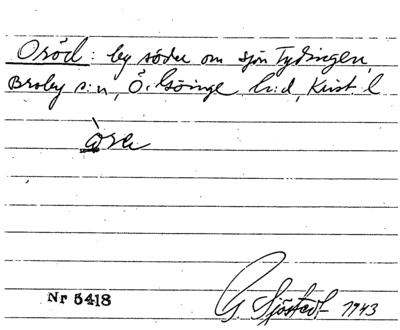 Oröd: by söder om sjön Tydingen,
Broby s:n, Ö. Göinge h:d, Krist. l
Nr 5418
G. Sjöstedt 1943